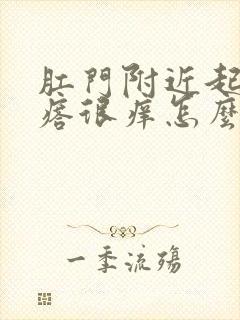 肛門附近起
瘩很痒怎麼
一季流殤